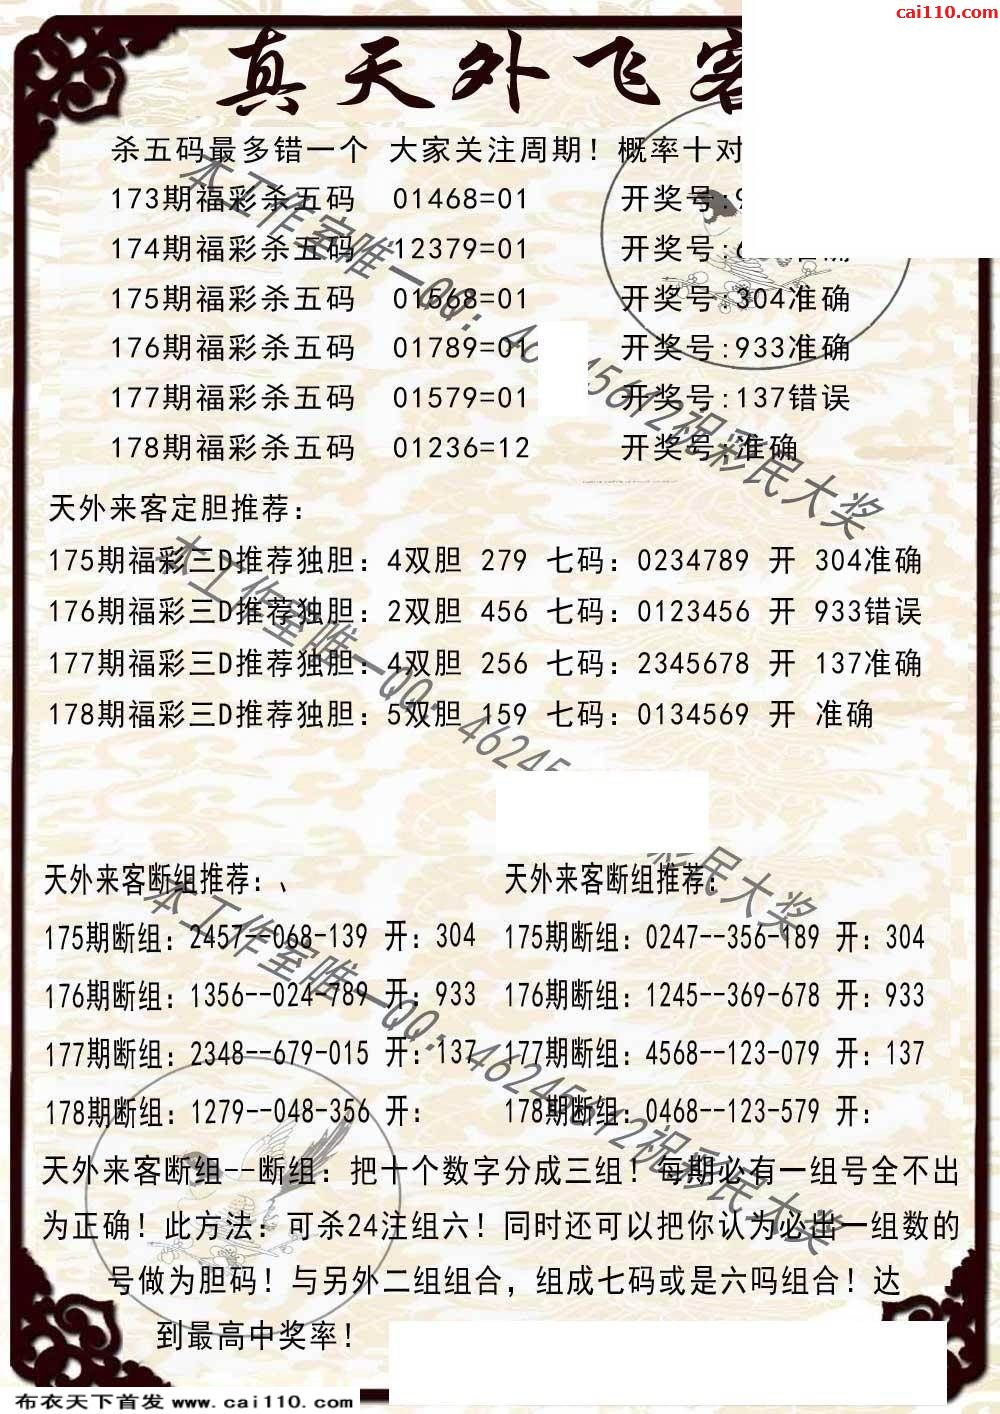 cai110.com
真天外飞客
杀五码最多错一个 大家关注周期！概率十对
173期福彩杀五码 01468=01 开奖号:9
174期福彩杀五码 12379=01 开奖号:6 准确
175期福彩杀五码 01568=01 开奖号:304准确
176期福彩杀五码 01789=01 开奖号:933准确
177期福彩杀五码 01579=01 开奖号:137错误
178期福彩杀五码 01236=12 开奖号:准确
天外来客定胆推荐：
175期福彩三D推荐独胆：4双胆 279 七码：0234789 开 304准确
176期福彩三D推荐独胆：2双胆 456 七码：0123456 开 933错误
177期福彩三D推荐独胆：4双胆 256 七码：2345678 开 137准确
178期福彩三D推荐独胆：5双胆 159 七码：0134569 开 准确
天外来客断组推荐：、 天外来客断组推荐：
175期断组：2457--068-139 开：304 175期断组：0247--356-189 开：304
176期断组：1356--024-789 开：933 176期断组：1245--369-678 开：933
177期断组：2348--679-015 开：137 177期断组：4568--123-079 开：137
178期断组：1279--048-356 开： 178期断组：0468--123-579 开：
天外来客断组--断组：把十个数字分成三组！每期必有一组号全不出
为正确！此方法：可杀24注组六！同时还可以把你认为必出一组数的
号做为胆码！与另外二组组合，组成七码或是六吗组合！达
到最高中奖率！
布衣天下首发 www.cai110.com
本工作室唯一QQ：46245612祝彩民大奖
本工作室唯一QQ：46245 彩民大奖
本工作室唯一QQ：46245612祝彩民大奖